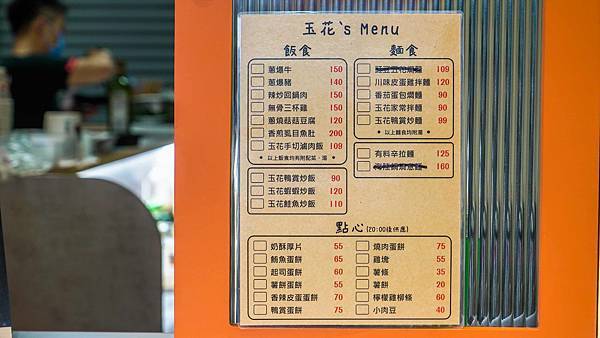 玉花's Menu
飯食
蔥爆牛 150
蔥爆豬 140
辣炒回鍋肉 150
無骨三杯雞 150
蔥燒菇菇豆腐 120
香煎虱目魚肚 200
玉花手切滷肉飯 109
• 以上飯食均有附配菜、湯 •
玉花鴨賞炒飯 90
玉花蝦蝦炒飯 120
玉花鮭魚炒飯 110
麵食
109
川味皮蛋雞拌麵 120
番茄蛋包燜麵 90
玉花家常拌麵 99
玉花鴨賞炒麵 99
• 以上麵食均附湯 •
有料辛拉麵 125
160
點心 (20:00後供應)
奶酥厚片 55
鮪魚蛋餅 65
起司蛋餅 60
薯餅蛋餅 55
香辣皮蛋蛋餅 70
鴨賞蛋餅 75
燒肉蛋餅 75
雞塊 55
薯條 35
薯餅 20
檸檬雞柳條 60
小肉豆 40